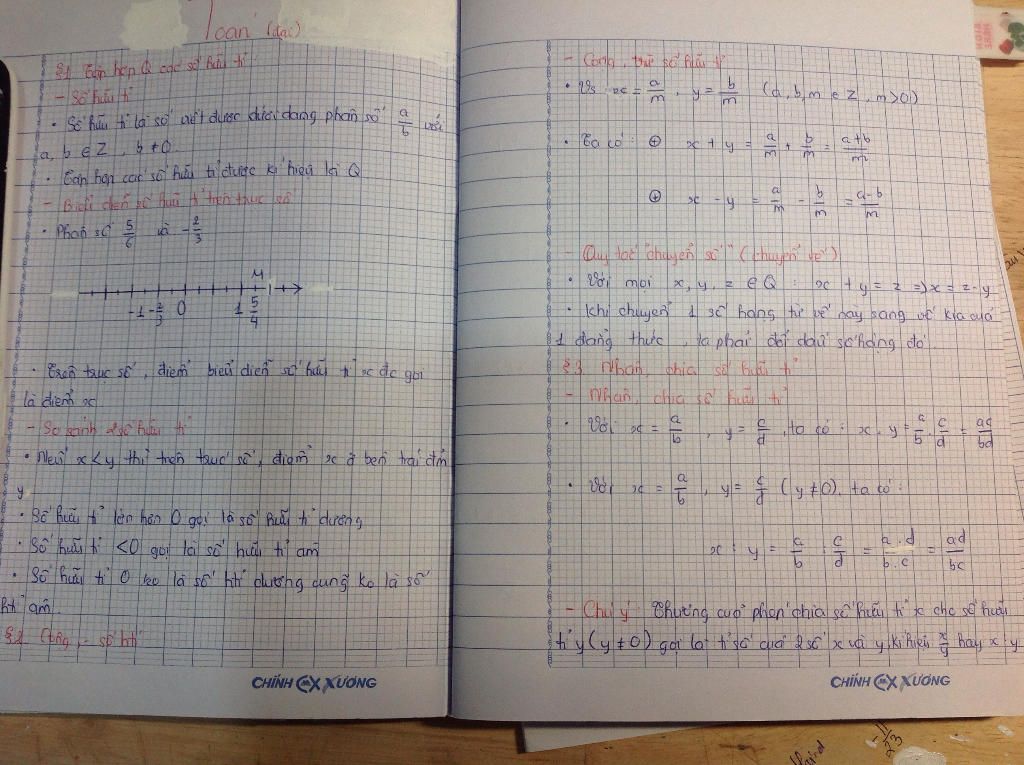 Toán (đại)
§1 Tập hợp Q các số hữu tỉ
- Số hữu tỉ
• Số hữu tỉ là số viết được dưới dạng phân số a/b với
a, b ∈ Z , b ≠ 0
• Tập hợp các số hữu tỉ được kí hiệu là Q
- Biểu diễn số hữu tỉ trên trục số
• Phân số 5/6 và -2/3
M
-1 -2/3 0 1 5/4
• Trên trục số, điểm biểu diễn số hữu tỉ x đc gọi
là điểm x
- So sánh 2 số hữu tỉ
• Nếu x < y thì trên trục số, điểm x ở bên trái đm
y
• Số hữu tỉ lớn hơn 0 gọi là số hữu tỉ dương
• Số hữu tỉ <0 gọi là số hữu tỉ âm
• Số hữu tỉ 0 ko là số htỉ dương cũng ko là số
htỉ âm.
§2 Cộng, - số htỉ
CHÍNH XƯƠNG
- Cộng, trừ số hữu tỉ
• Vs x = a/m , y = b/m (a, b, m ∈ Z , m > 0)
• Ta có : ⊕ x + y = a/m + b/m = a+b/m
⊕ x - y = a/m - b/m = a-b/m
- Quy tắc "chuyển số" (chuyển vế)
• Với mọi x, y, z ∈ Q : x + y = z => x = z - y
• Khi chuyển 1 số hạng từ vế này sang vế kia của
1 đẳng thức, ta phải đổi dấu số hạng đó.
§3 Nhân, chia số hữu tỉ
- Nhân, chia số hữu tỉ
• Với x = a/b , y = c/d , ta có : x . y = a/b . c/d = ac/bd
• Với x = a/b , y = c/d (y ≠ 0). ta có :
x : y = a/b : c/d = a . d/b . c = ad/bc
- Chú ý : Thương của phép chia số hữu tỉ x cho số hữu
tỉ y (y ≠ 0) gọi là tỉ số của 2 số x và y, kí hiệu x/y hay x : y
CHÍNH XƯƠNG